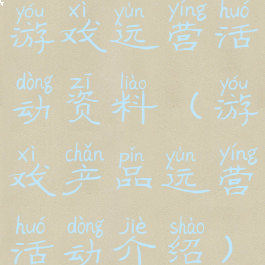 yóu xì yùn yíng huó
游戏运营活
dòng zī liào yóu
动资料（游
xì chǎn pǐn yùn yíng
戏产品运营
huó dòng jiè shào
活动介绍）